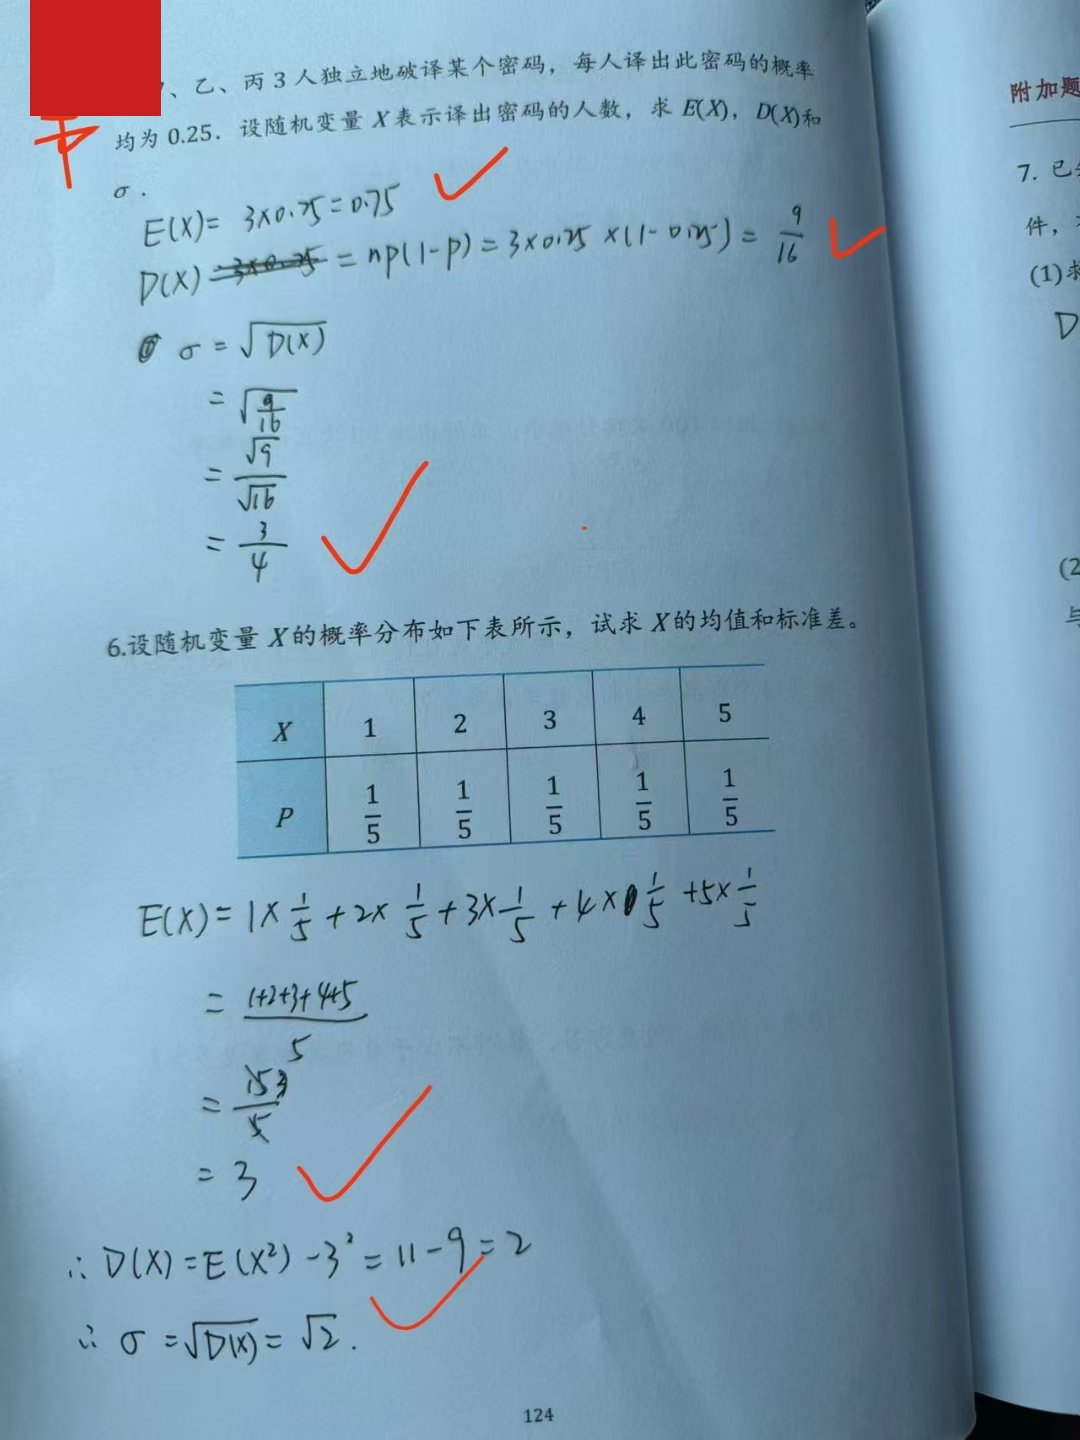 、乙、丙 3 人独立地破译某个密码，每人译出此密码的概率
均为 0.25．设随机变量 X 表示译出密码的人数，求 E(X)，D(X)和
σ．
E(X)= 3×0.25=0.75
D(X)= 3×0.25 = np(1-p)=3×0.25×(1-0.25)= 9/16
σ = √D(X)
= √(9/16)
= √9/√16
= 3/4
6.设随机变量 X 的概率分布如下表所示，试求 X 的均值和标准差。
X 1 2 3 4 5
P 1/5 1/5 1/5 1/5 1/5
E(X)= 1×1/5+2×1/5+3×1/5+4×1/5+5×1/5
= (1+2+3+4+5)/5
= 15/5 3
= 3
∴ D(X)=E(X²)-3²=11-9=2
∴ σ=√D(X)=√2.
124
附加题
7. 已
件，
(1)求
D
(2
与